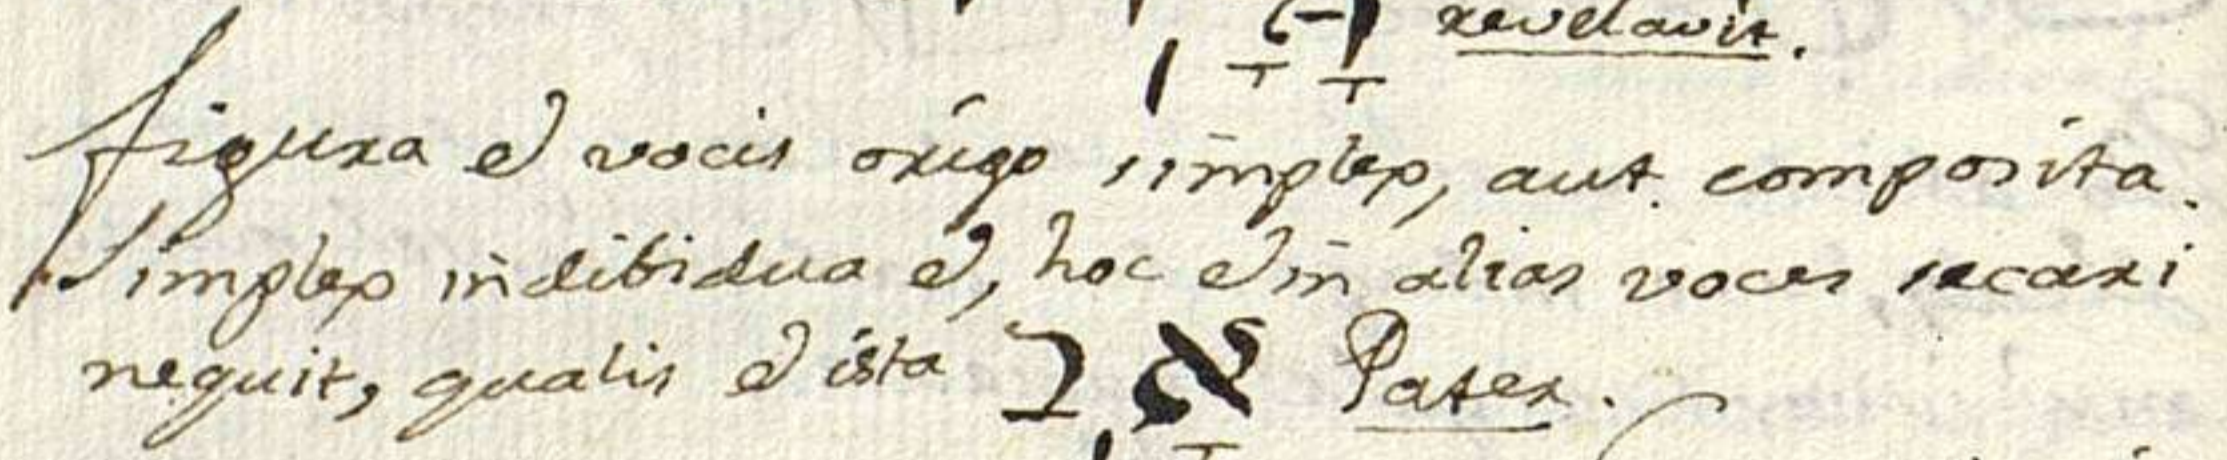 revelavit.
figura ē vocis origo sim̄plex, aut composita.
Simplex in̄dibidua ē, hoc ē in̄ alias voces secari
nequit, qualis ē ista אָב Pater.